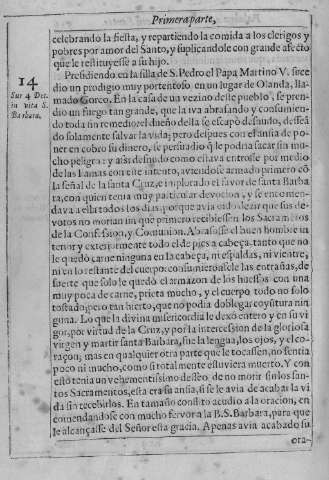 Primera parte,
celebrando la fiesta, y repartiendo la comida a los clerigos y
pobres por amor del Santo, y suplicandole con grande afecto
que le restituyesse a su hijo.
14
Sur 4 Dec.
in vita S.
Barbara.
Presidiendo en la silla de S. Pedro el Papa Martino V. suce
dio un prodigio muy portentoso en un lugar de Olanda, lla
mado Gorco. En la casa de un vezino deste pueblo, se pren
dio un fuego tan grande, que la iva abrasando y consumien-
do toda sin remedio: el dueño della se escapò desnudo, deseã
do solamente salvar la vida; pero despues con el ansia de po
ner en cobro su dinero, se persuadiò q̃ le podria sacar sin mu
cho peligro: y assi desnudo como estava entrosse por medio
de las llamas con este intento, aviendose armado primero cõ
la señal de la santa Cruz, e implorado el favor de santa Barba
ra, con quien tenia muy particular devocion, y se encomen-
dava a ella todos los dias, porque avia oido dezir que sus de-
votos no morian sin que primero recibiessen los Sacramẽtos
de la Confession, y Comunion. Abrasosse el buen hombre in
terior y exteriormente todo el de pies a cabeça, tanto que no
le quedò carne ninguna en la cabeça, ni espaldas, ni vientre,
ni en lo restante del cuerpo: consumieronsele las entrañas, de
suerte que solo le quedò el armazon de los huessos con una
muy poca de carne, prieta mucho, y el cuerpo todo no solo
tostado, pero tan hierto, que no podia doblegar coyũtura nin
guna. Lo que la divina misericordia le dexò entero y en su vi
gor, por virtud de la Cruz, y por la intercession de la gloriosa
virgen y martir santa Barbara, fue la lengua, los ojos, y el co-
raçon; mas en qualquier otra parte que le tocassen, no sentia
poco ni mucho, como si totalmente estuviera muerto. Y con
esto tenia un vehementissimo desseo de no morir sin los san-
tos Sacramentos, esta era su ansia, si se le avia de acabar la vi
da sin recebirlos. En tamaño conflito acudio a la oracion, en
comendandose con mucho fervor a la B. S. Barbara, para que
le alcançasse del Señor esta gracia. Apenas avia acabado su
ora-